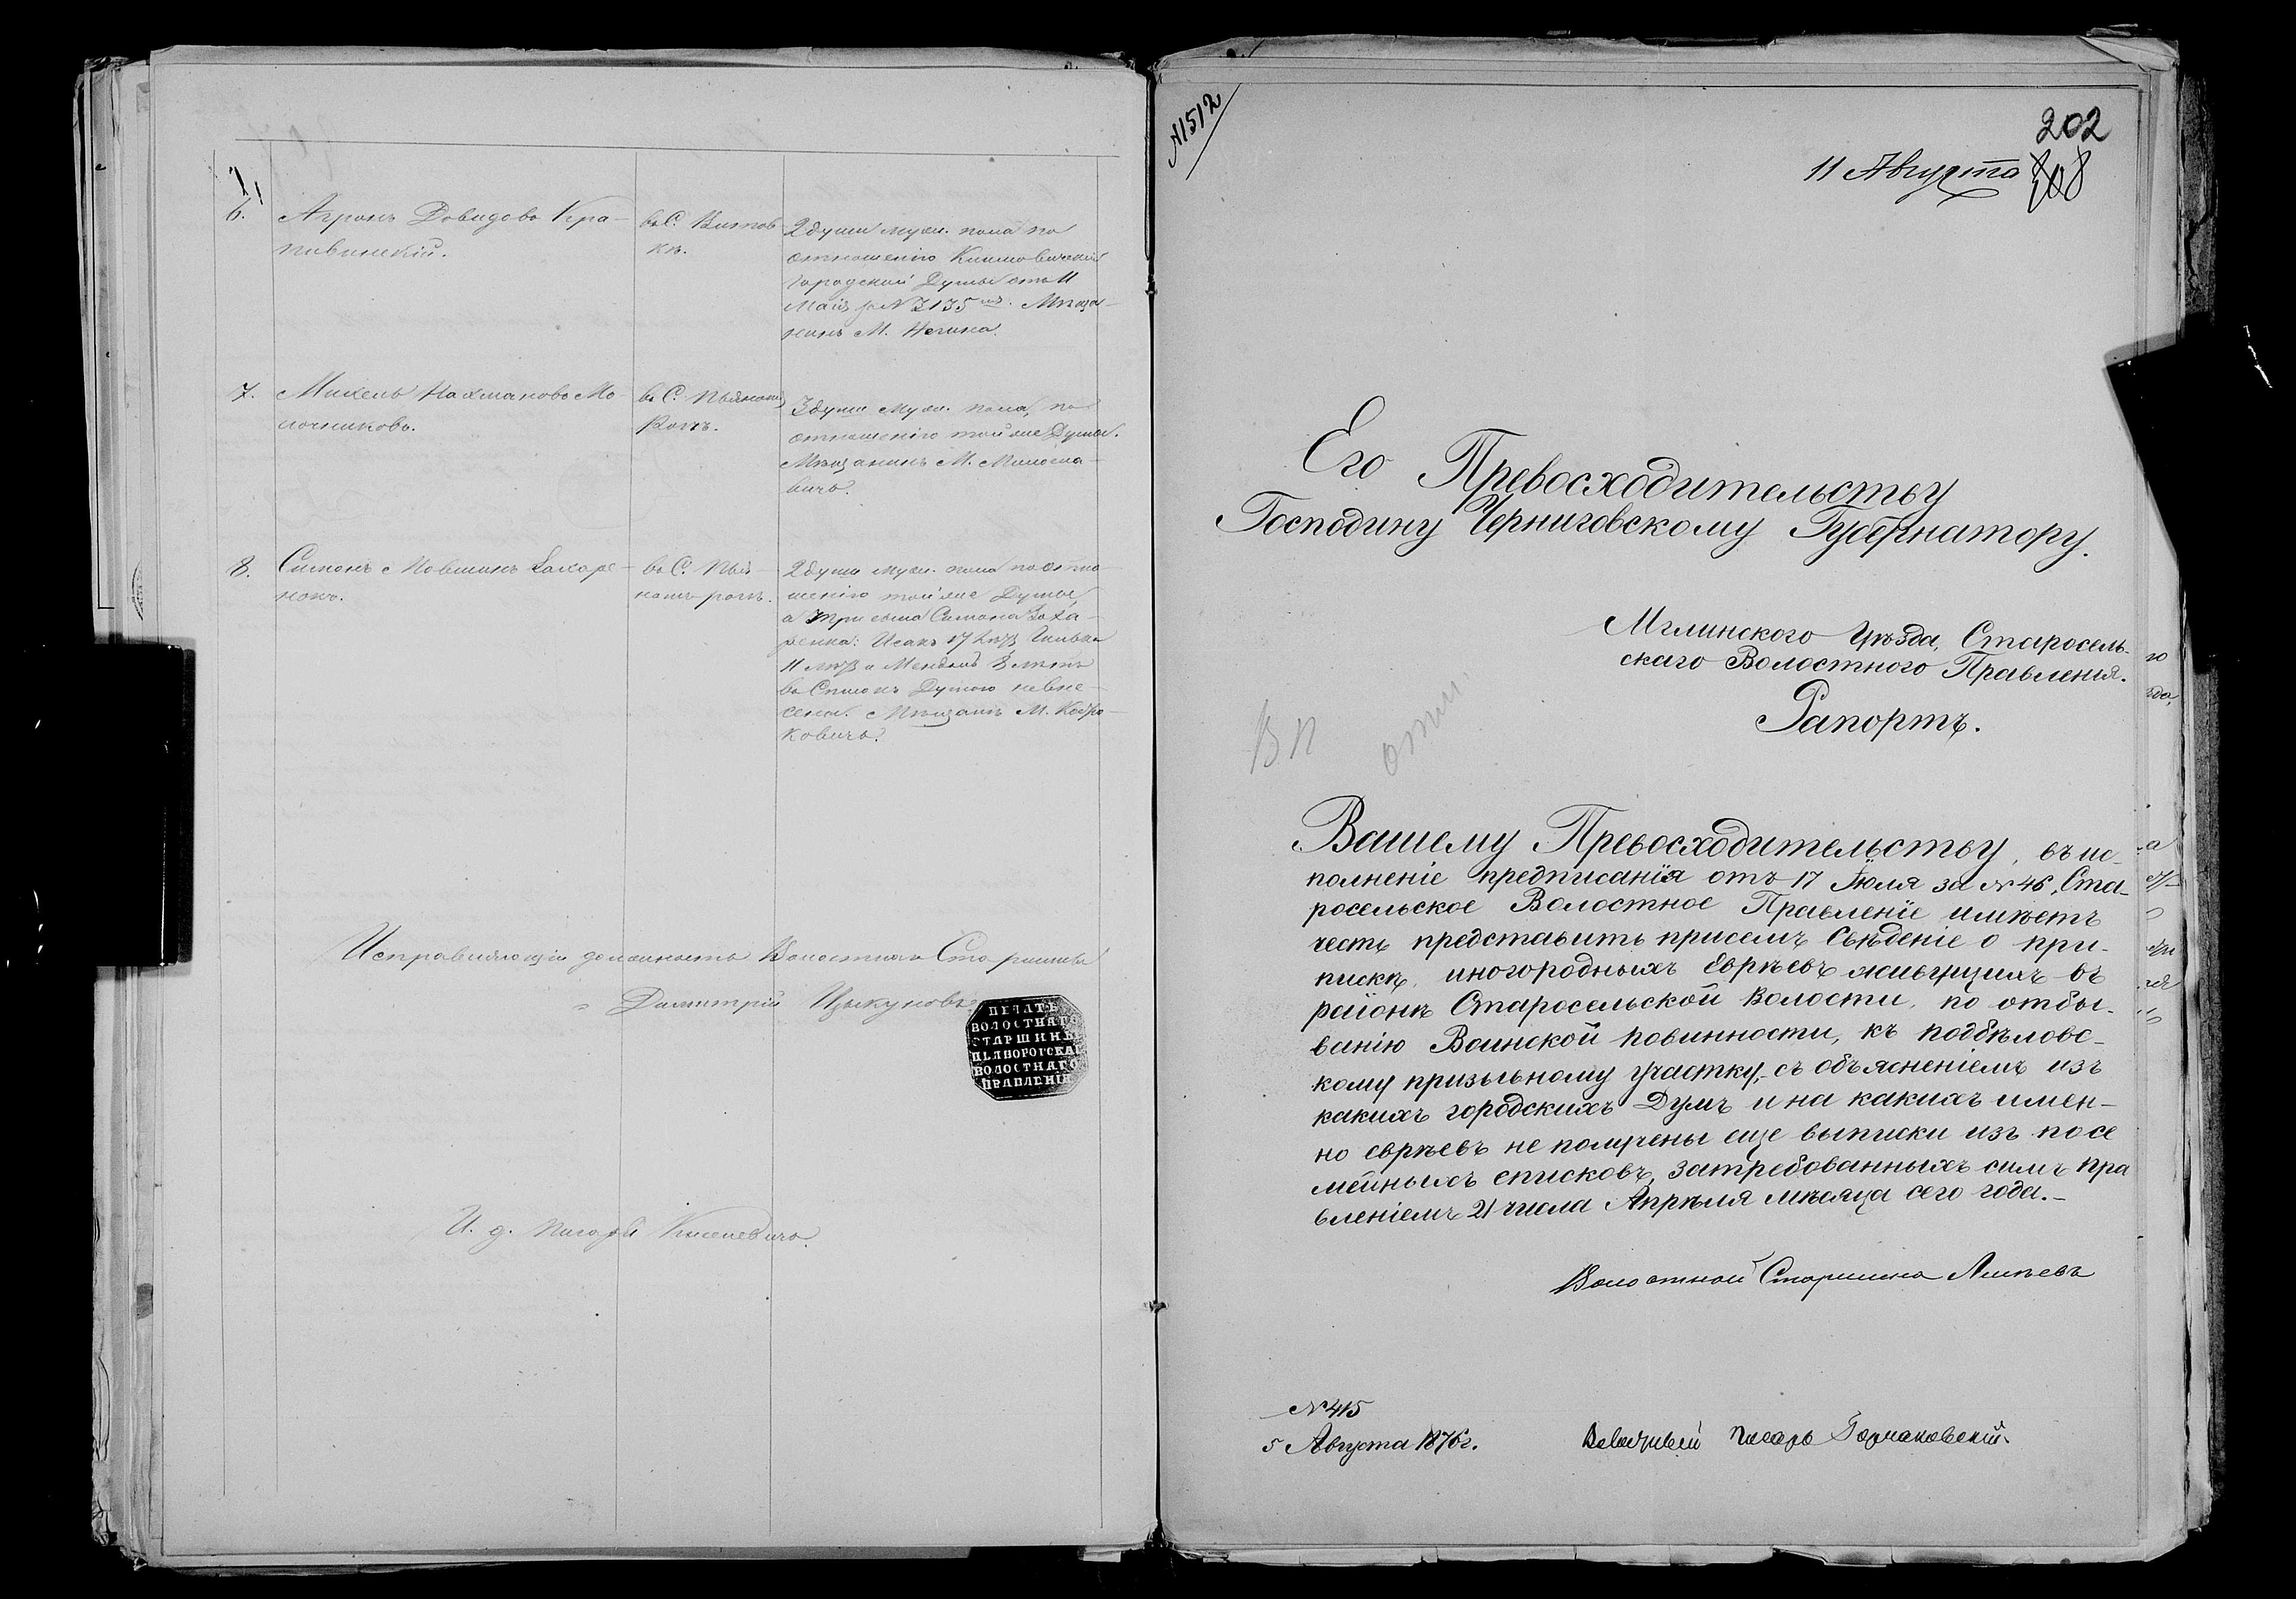 6.
Агронъ Довидовъ Кра-
пивинскій.
въ С. Витов
кѣ.
2 души муж. пола по
отношенію Климовичской
Городской Думы отъ 11
Мая за № 3135
Мѣща-
нинъ М.
7.
Михель Нахмановъ Мо-
лочниковъ.
въ С. Пьяномъ
Рогѣ.
3 души муж. пола, по
отношенію той же Думы.
Мѣщанинъ М. Милосла-
вичъ.
8.
Симонъ Захаре-
нокъ.
въ С. Пья-
номъ рогѣ.
2 души муж. пола по отно-
шенію той же Думы,
а три сына Симона Заха-
ренка: Исакъ 17 лѣтъ
11 лѣтъ и Мендель 8 лѣтъ
въ Списокъ Думою невне-
сены. Мѣщанинъ М.
ковичъ.
Исправляющій должность Волостнаго Старшины
Димитрій Цыкуновъ
ПЕЧАТЬ
ВОЛОСТНАГО
СТАРШИНЫ
ПЬЯНОРОГСКАГО
ВОЛОСТНАГО
ПРАВЛЕНІЯ
И. д. Писаря Киселевичъ.
А1512
202
11 Августа 208
Его Превосходительству
Господину Черниговскому Губернатору.
Мглинского Уѣзда, Старосель-
скаго Волостного Правления.
Рапортъ.
ВП
отт.
Вашему Превосходительству, въ ис-
полненіе предписанія отъ 17 Іюля за № 46, Ста-
росельское Волостное Правленіе имѣетъ
честь представить присемъ Свѣденіе о при-
пискѣ, иногородныхъ Евреѣвъ живущихъ въ
районѣ Старосельской Волости, по отбы-
ванію Воинской повинности, къ подбѣловс-
кому призывному участку, съ объясненіемъ изъ
какихъ городскихъ Думъ и на какихъ имен-
но евреѣвъ не получены еще выписки изъ посе
мейныхъ списковъ, затребованныхъ симъ пра
вленіемъ 21 числа Апрѣля мѣсяца сего года.-
Волостной Старшина
№ 415
5 Августа 1876 г.
Писарь